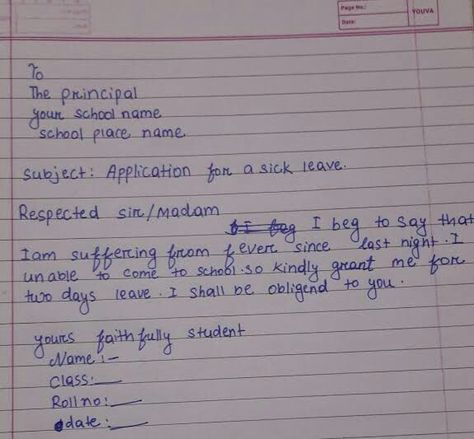 Page No.:
Date:
YOUVA
To
The principal
your school name
school place name
Subject: Application for a sick leave.
Respected sir/Madam
I beg to say that
Iam suffering from fever since last night. I
unable to come to school. so kindly grant me for
two days leave. I shall be obligend to you.
yours faithfully student
Name:-
Class:
Roll no:
date: